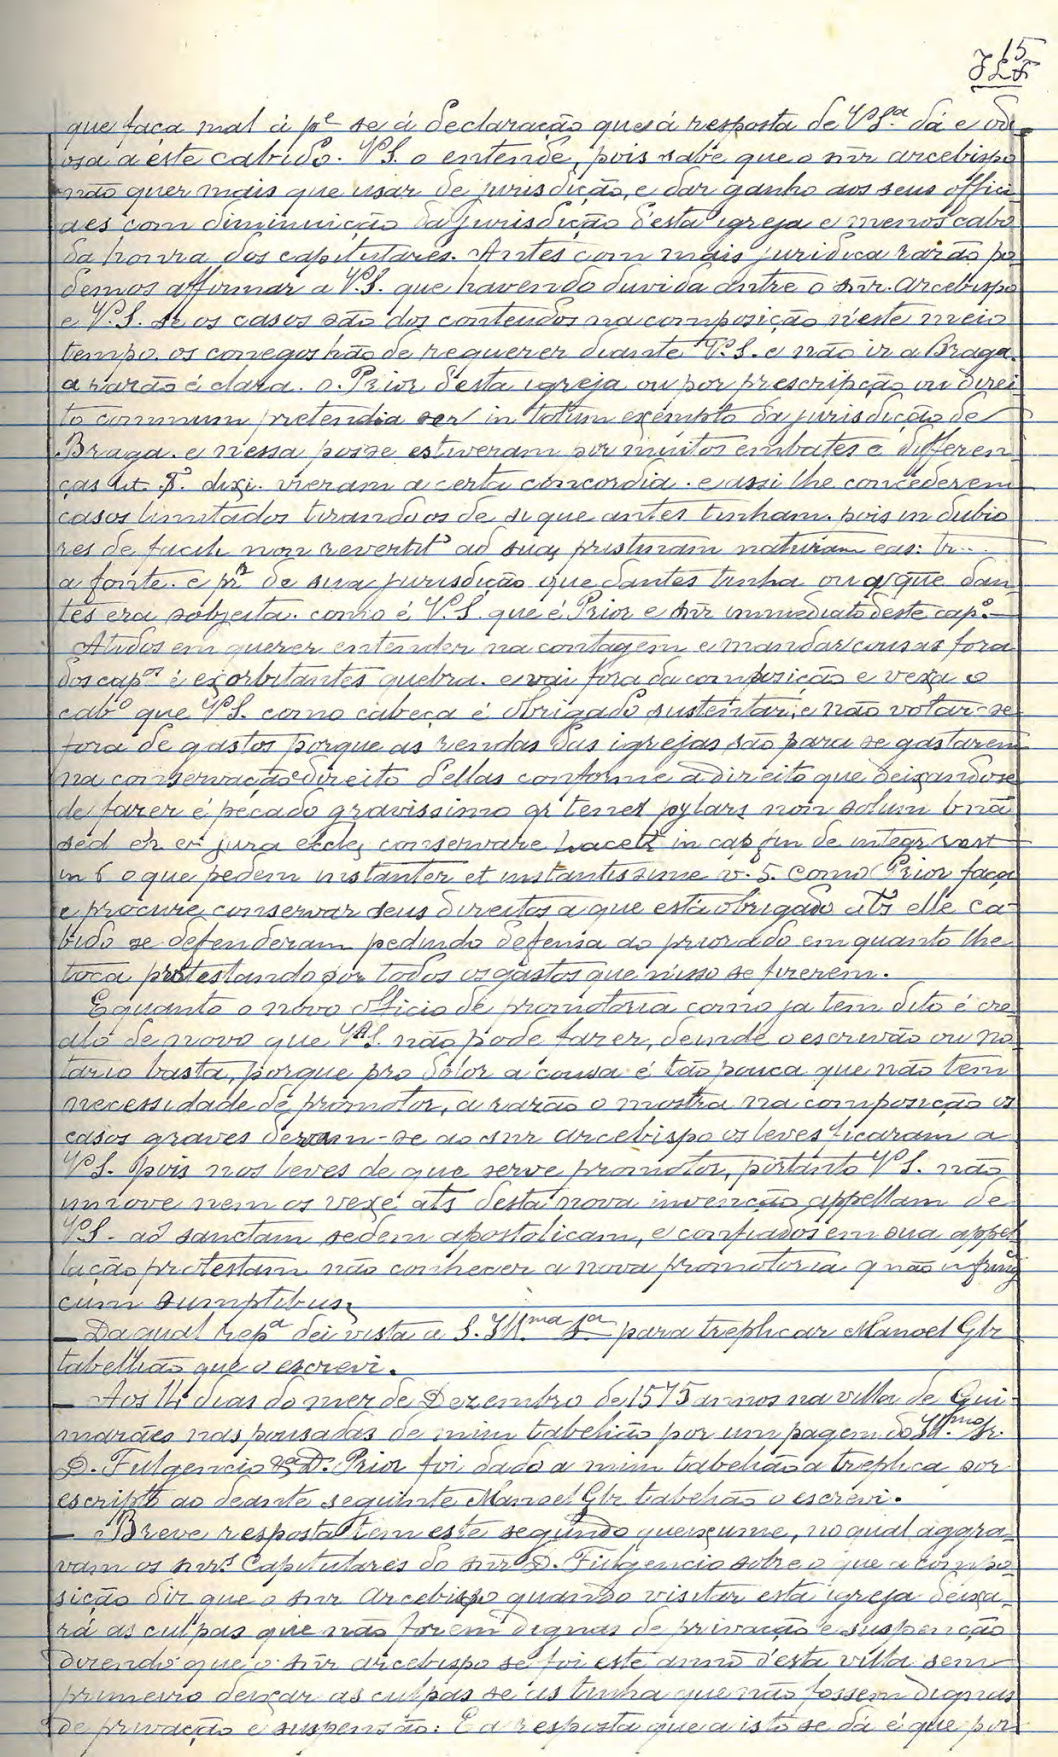 15
que faça mal á p.e se á declaração que á resposta de V.S.a dá e odi-
osa a este cabido. V.S. o entende, pois sabe que o snr arcebispo
não quer mais que usar de jurisdição, e dar ganho aos seus offici-
aes com diminuição da jurisdição d'esta igreja e menos cabo
da honra dos capitulares. Antes com mais juridica razão po-
demos affirmar a V.S. que havendo duvida entre o snr. arcebispo
e V.S. se os casos são dos conteudos na composição n'este meio
tempo. os conegos hão de requerer diante V.S. e não ir a Braga.
a razão é clara. o Prior d'esta igreja ou por prescripção ou direi-
to commum pretendia ser in totum exempto da jurisdição de
Braga. e nessa posse estiveram por muitos embates e differen-
ças ut. S. dixi. vieram a certa concordia. e assi lhe concederem
casos limitados tirando os de si que antes tinham. pois in dubio
res de facili non revertit ad suaz pristinam naturam eas:
a fonte. e de sua jurisdição que dantes tinha ou a que dan-
tes era sobjeita. como é V.S. que é Prior e snr immediato deste cap.o
Atudos em querer entender na contagem e mandar cousas fora
dos cap.os é exorbitantes quebra. e vai fora da composição e vexa o
cab.o que V.S. como cabeça é obrigado sustentar, e não votar-se
fora de gastos porque as rendas das igrejas são para se gastarem
na conservação e direito d'ellas conforme a direito que deixando se
de fazer é pecado gravissimo non solum
sed jura conservare in cap fin de integr rest
in 6 o que pedem instanter et instantissime v.S. como Prior faça
e procure conservar seus direitos a que está obrigado elle ca-
bido se defenderam pedindo defensa ao priorado em quanto lhe
toca protestando por todos os gastos que n'isso se fizerem.
E quanto o novo officio de promotoria como ja tem dito é cre-
ado de novo que V.S. não pode fazer, deinde o escrivão ou no-
tario basta, porque pro dolor a cousa é tão pouca que não tem
necessidade de promotor, a razão o mostra na composição os
casos graves deram-se ao snr arcebispo os leves ficaram a
V.S. pois nos leves de que serve promotor, portanto V.S. não
innove nem os vexe desta nova invenção appellam de
V.S. ad sanctam sedem apostolicam, e confiados em sua appel-
lação protestam não conhecer a nova promotoria q não
cum sumptibus
— Da qual rep.a dei vista a S. Ill.ma S.a para treplicar Manoel Glz
tabellião que o escrevi.
— Aos 14 dias do mez de Dezembro de 1575 annos na villa de Gui-
marães nas pousadas de mim tabelião por um pagem do Ill.mo Sr.
D. Fulgencio D. Prior foi dado a mim tabelião a treplica por
escripto ao deante seguinte Manoel Glz tabelião o escrevi.
— Breve resposta tem este segundo queixume, no qual aggra-
vam os snrs Capitulares do snr D. Fulgencio sobre o que a compo-
sição diz que o snr Arcebispo quando visitar esta igreja deixa-
rá as culpas que não forem dignas de privação e suspenção
dizendo que o snr arcebispo se foi este anno d'esta villa sem
primeiro deixar as culpas se as tinha que não fossem dignas
de privação e suspensão: E a resposta que a isto se dá é que por